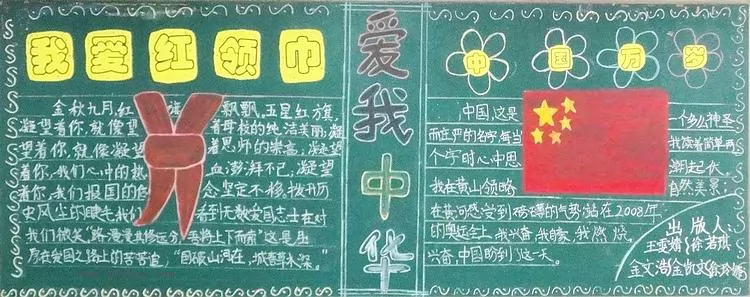 我爱红领巾
金秋九月,红 旗 飘飘。五星红旗,
凝望着你,就像望 着母校的纯洁美丽;凝
望着你,就像凝望 着恩师的崇高;凝望
着你,我们心中的热 血澎湃不已,凝望
着你,我们报国的信 念坚定不移。拨开历
史风尘的睫毛,我们 看到无数爱国志士在对
我们微笑“路漫漫其修远兮,吾将上下而索”这是屈
原在爱国之路上的苦苦追,“国破山河在,城春草木深。”
爱我中华
中国万岁
中国,这是 一个多么神圣
而庄严的名字,每当 我读着简单两
个字时心中思 潮起伏。
我在黄山领略 自然美景;
在黄河感受到磅礴的气势;站在2008年
的奥运会上,我兴奋,我自豪,我燃烧,
兴奋,中国盼到这一天。
出版人:
王雯婧 徐若琪
金文浩 金凯文